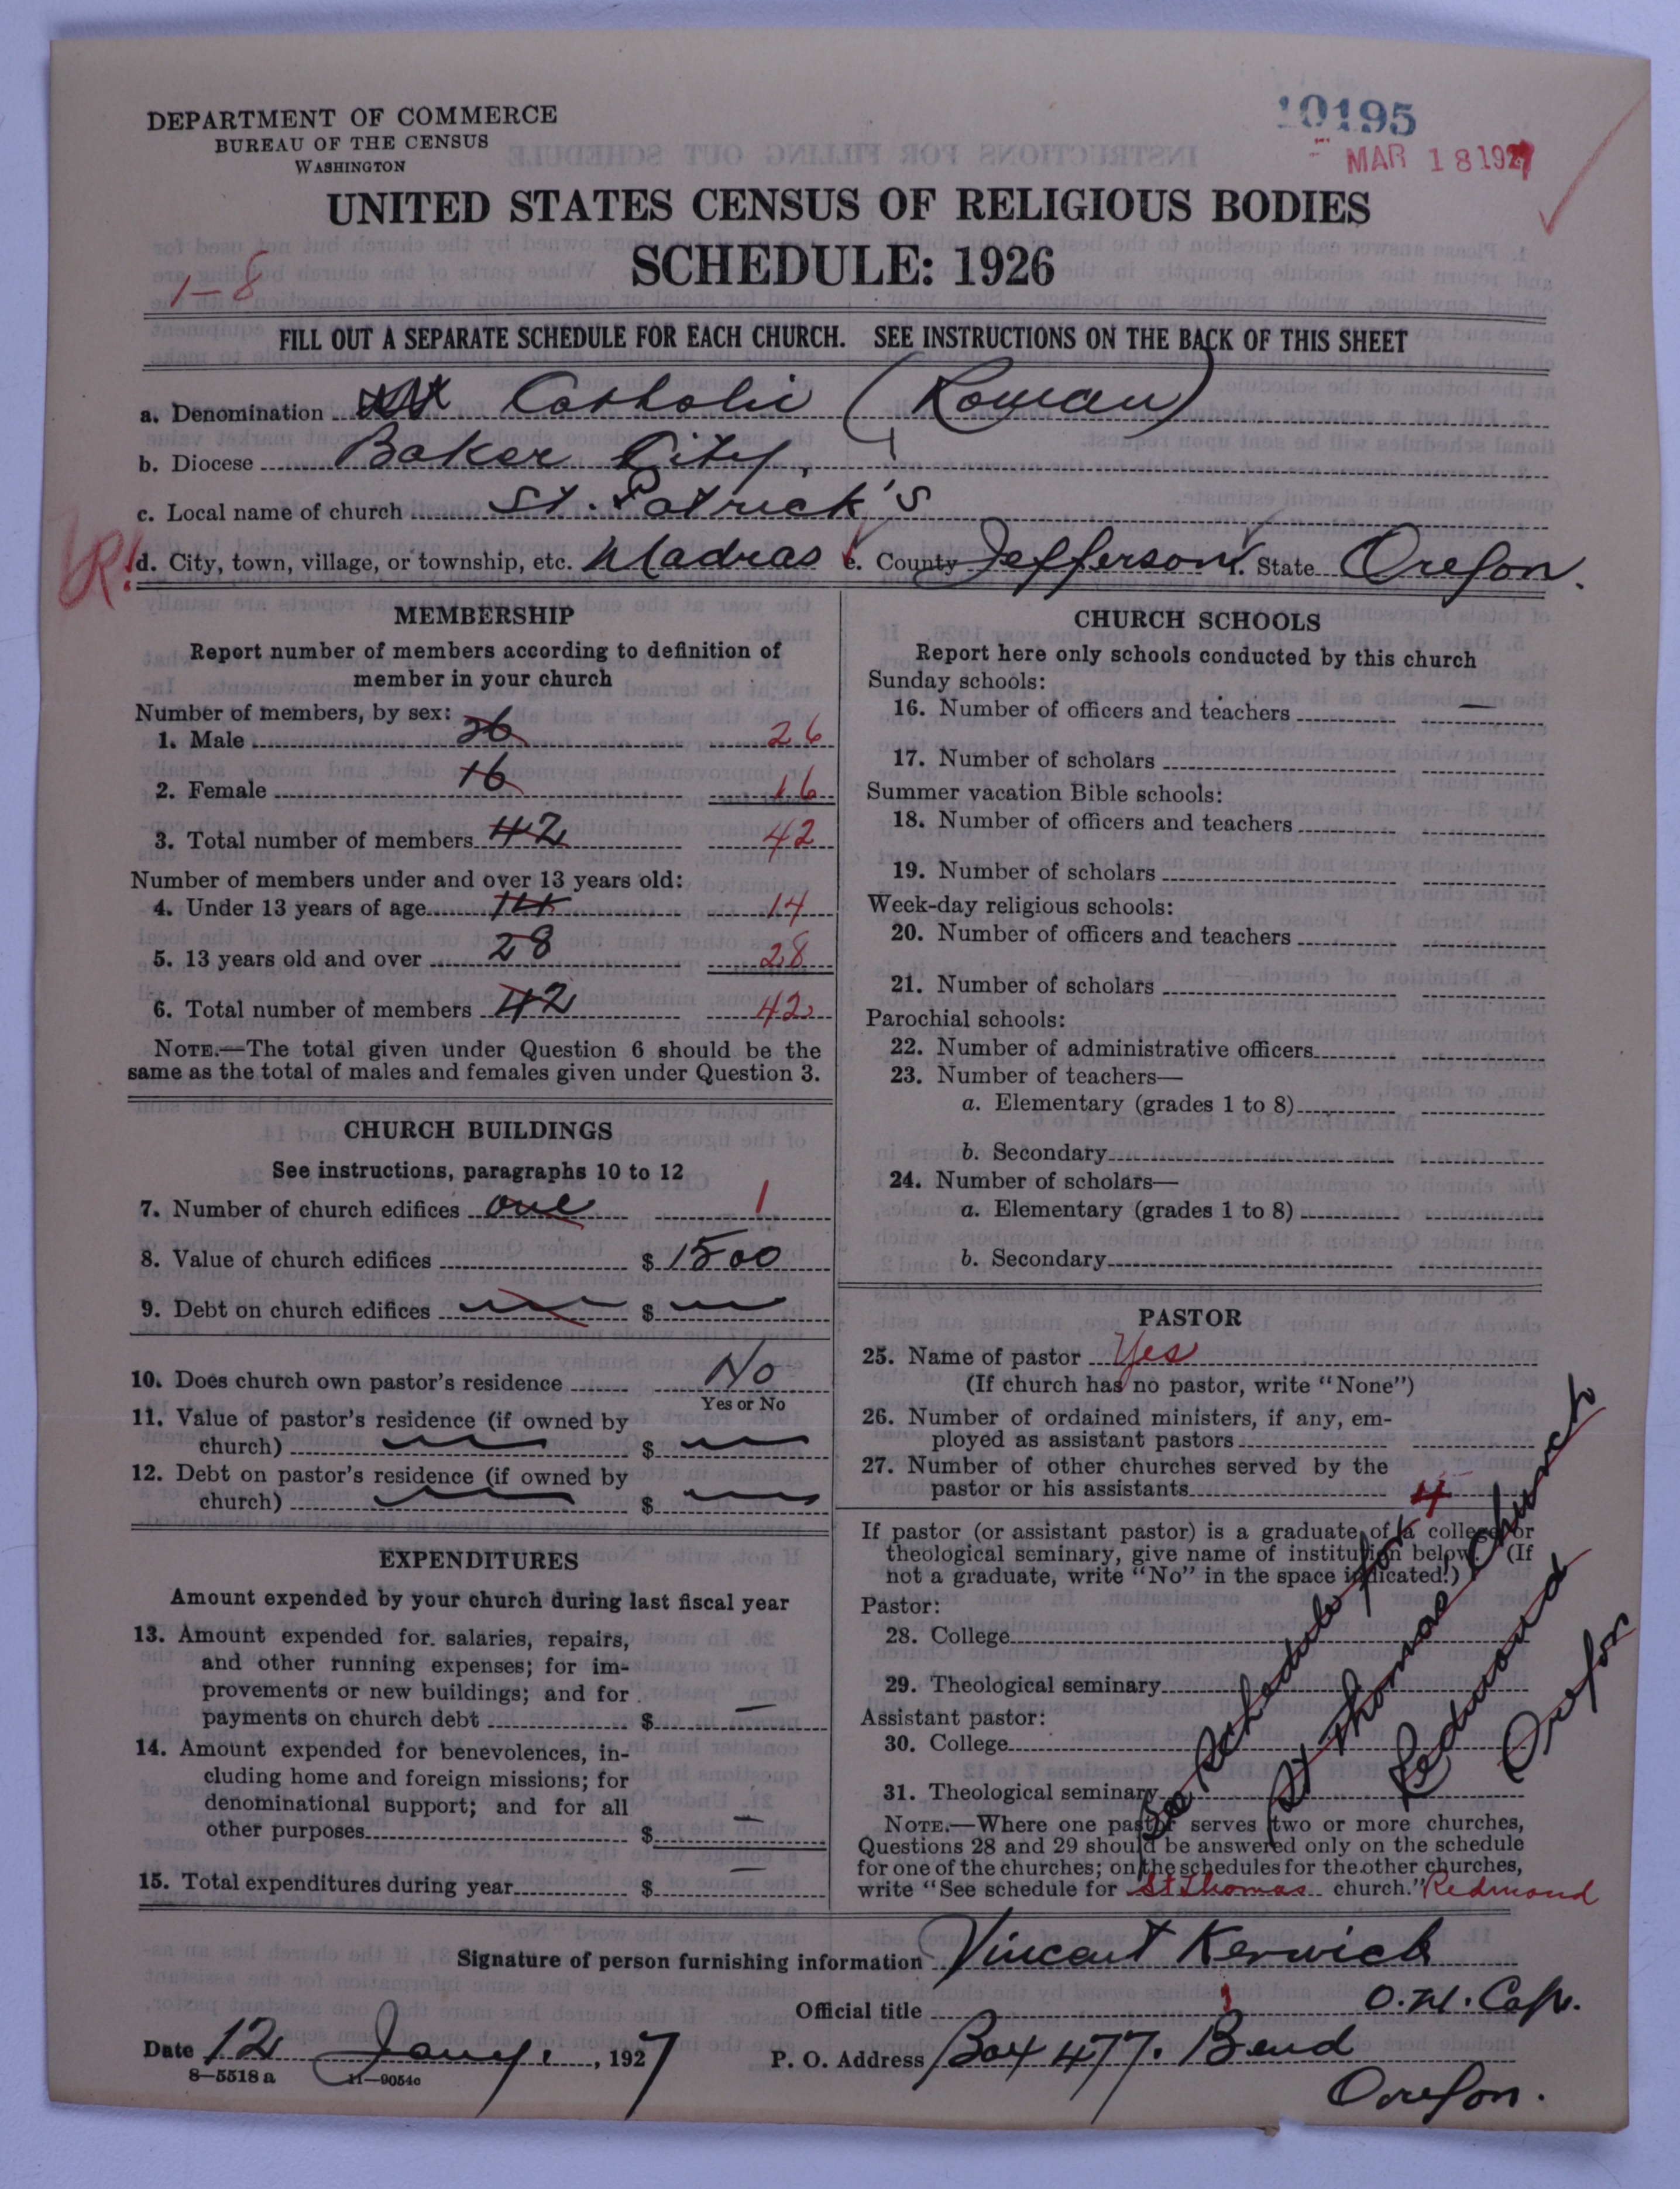 DEPARTMENT OF COMMERCE
BUREAU OF THE CENSUS
WASHINGTON
10195
MAR 18 1927
UNITED STATES CENSUS OF RELIGIOUS BODIES
SCHEDULE: 1926
1-8
FILL OUT A SEPARATE SCHEDULE FOR EACH CHURCH. SEE INSTRUCTIONS ON THE BACK OF THIS SHEET
a. Denomination Catholic (Roman)
b. Diocese Baker City,
c. Local name of church St. Patrick's
d. City, town, village, or township, etc. Madras e. County Jefferson f. State Oregon.
MEMBERSHIP
Report number of members according to definition of
member in your church
Number of members, by sex:
1. Male 26 26
2. Female 16 16
3. Total number of members 42 42
Number of members under and over 13 years old:
4. Under 13 years of age 14 14
5. 13 years old and over 28 28
6. Total number of members 42 42
NOTE.—The total given under Question 6 should be the
same as the total of males and females given under Question 3.
CHURCH BUILDINGS
See instructions, paragraphs 10 to 12
7. Number of church edifices one 1
8. Value of church edifices $ 1500
9. Debt on church edifices — $ —
10. Does church own pastor's residence No
Yes or No
11. Value of pastor's residence (if owned by
church) — $ —
12. Debt on pastor's residence (if owned by
church) — $ —
EXPENDITURES
Amount expended by your church during last fiscal year
13. Amount expended for salaries, repairs,
and other running expenses; for im-
provements or new buildings; and for
payments on church debt $ —
14. Amount expended for benevolences, in-
cluding home and foreign missions; for
denominational support; and for all
other purposes $ —
15. Total expenditures during year $ —
CHURCH SCHOOLS
Report here only schools conducted by this church
Sunday schools:
16. Number of officers and teachers —
17. Number of scholars
Summer vacation Bible schools:
18. Number of officers and teachers
19. Number of scholars
Week-day religious schools:
20. Number of officers and teachers
21. Number of scholars
Parochial schools:
22. Number of administrative officers
23. Number of teachers—
a. Elementary (grades 1 to 8)
b. Secondary
24. Number of scholars—
a. Elementary (grades 1 to 8)
b. Secondary
PASTOR
25. Name of pastor Yes
(If church has no pastor, write "None")
26. Number of ordained ministers, if any, em-
ployed as assistant pastors
27. Number of other churches served by the
pastor or his assistants 4
If pastor (or assistant pastor) is a graduate of a college or
theological seminary, give name of institution below. (If
not a graduate, write "No" in the space indicated.)
Pastor:
28. College
29. Theological seminary
Assistant pastor:
30. College
31. Theological seminary
See Schedule for
St Thomas Church
Redmond
Oregon
NOTE.—Where one pastor serves two or more churches,
Questions 28 and 29 should be answered only on the schedule
for one of the churches; on the schedules for the other churches,
write "See schedule for St Thomas church." Redmond
Signature of person furnishing information Vincent Kerwick
Official title O.M. Cap.
Date 12 Jany. , 1927 P. O. Address Box 477. Bend
Oregon.
8—5518 a 11—9054c